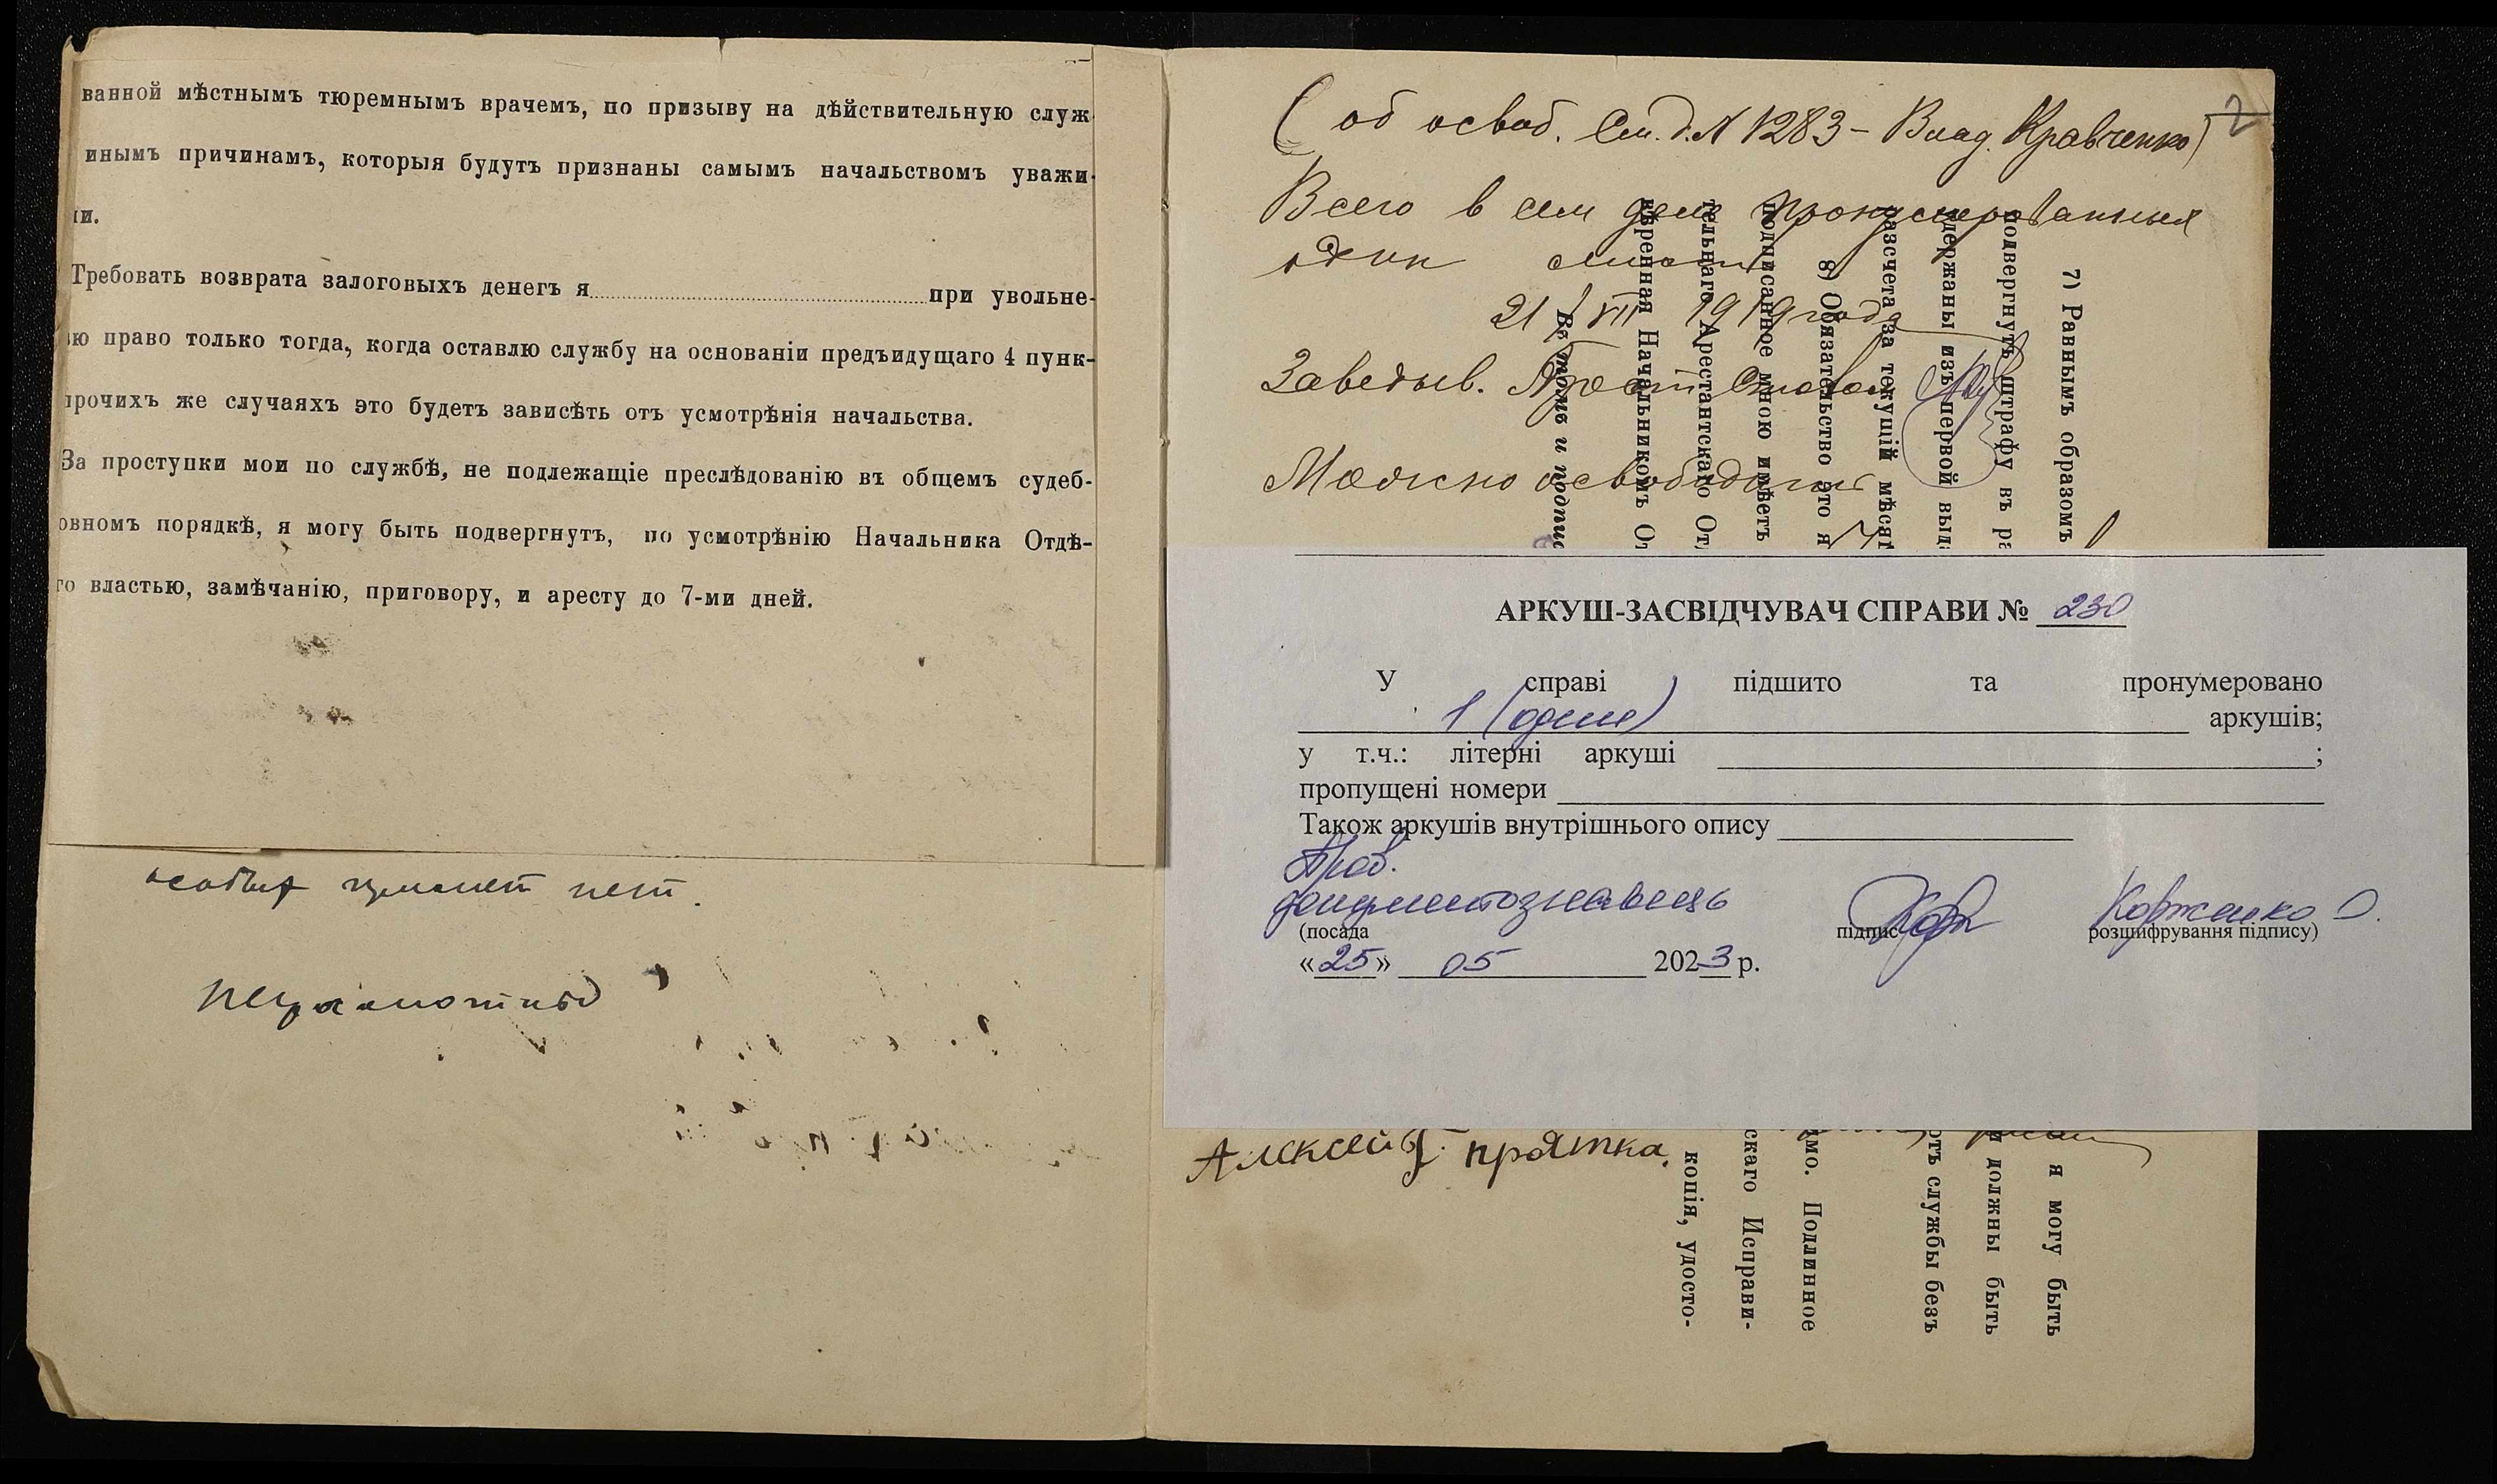 ванной мѣстнымъ тюремнымъ врачемъ, по призыву на дѣйствительную служ
инымъ причинамъ, которыя будутъ признаны самымъ начальствомъ уважи-
ии.
Требовать возврата залоговыхъ денегъ я при увольне-
ю право только тогда, когда оставлю службу на основаніи предъидущаго 4 пунк-
прочихъ же случаяхъ это будетъ зависѣть отъ усмотрѣнія начальства.
За проступки мои по службѣ, не подлежащіе преслѣдованію въ общемъ судеб-
овномъ порядкѣ, я могу быть подвергнутъ, по усмотрѣнію Начальника Отдѣ-
го властью, замѣчанію, приговору, и аресту до 7-ми дней.
особых примет нет.
неграмотный
2
(об освоб. См. д. № 1283 - Влад. Кравченко)
Всего в сем деле пронумерованных
один лист
21/VII 1919 года
Заведыв. Арест.
Можно освободить
7) Равнымъ образомъ я могу быть
подвергнутъ штрафу въ ра должны быть
держаны изъ первой выда отъ службы безъ
азсчета за текущій мѣсяц
8) Обязательство это я мо. Подлинное
подписанное мною имѣетъ скаго Исправи-
тельнаго Арестантскаго От копія, удосто-
вѣренная Начальникомъ От
Въ томъ и подпис
АРКУШ-ЗАСВІДЧУВАЧ СПРАВИ № 230
У справі підшито та пронумеровано
1 (один) аркушів;
у т.ч.: літерні аркуші ;
пропущені номери
Також аркушів внутрішнього опису
Пров.
документознавець Корженко О.
(посада підпис розшифрування підпису)
«25» 05 2023 р.
Алексей прятка.